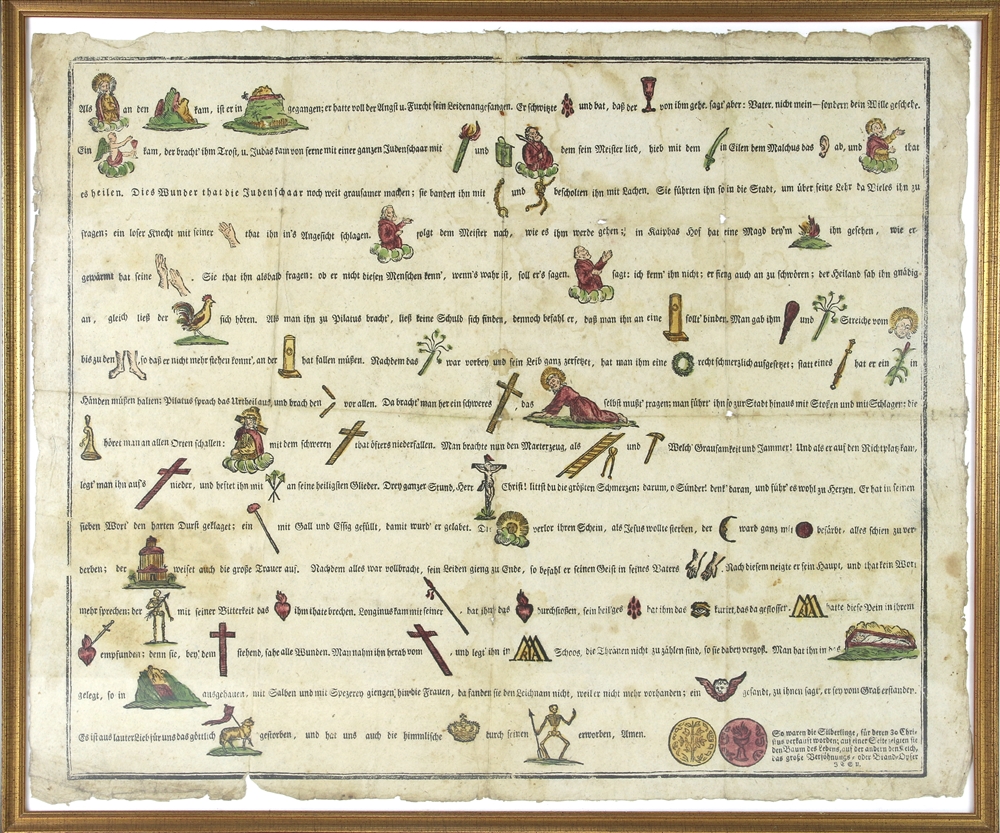 Als an den kam, ist er in gegangen; er hatte voll der Angst u. Furcht sein Leiden angefangen. Er schwitzte und bat, daß der von ihm gehe, sagt' aber: Vater, nicht mein — sondern dein Wille geschehe.
Ein kam, der bracht' ihm Trost, u. Judas kam von ferne mit einer ganzen Judenschaar mit und dem sein Meister lieb, hieb mit dem in Eilen dem Malchus das ab, und that
es heilen. Dies Wunder that die Judenschaar noch weit grausamer machen; sie banden ihn mit und bescholten ihn mit Lachen. Sie führten ihn so in die Stadt, um über seine Lehr da Vieles ihn zu
fragen; ein loser Knecht mit seiner that ihn in's Angesicht schlagen. folgt dem Meister nach, wie es ihm werde gehen; in Kaiphas Hof hat eine Magd bey'm ihn gesehen, wie er
gewärmt hat seine . Sie that ihn alsbald fragen: ob er nicht diesen Menschen kenn', wenn's wahr ist, soll er's sagen. sagt: ich kenn' ihn nicht; er fieng auch an zu schwören; der Heiland sah ihn gnädig-
an, gleich ließ der sich hören. Als man ihn zu Pilatus bracht', ließ keine Schuld sich finden, dennoch befahl er, daß man ihn an eine sollt' binden. Man gab ihm und Streiche vom
bis zu den , so daß er nicht mehr stehen konnt', an der hat fallen müßen. Nachdem das war vorbey und sein Leib ganz zersetzt, hat man ihm eine recht schmerzlich aufgesetzt; statt eines hat er ein in
Händen müßen halten; Pilatus sprach das Urtheil aus, und brach den vor allen. Da bracht' man her ein schweres , das selbst mußt' tragen; man führt' ihn so zur Stadt hinaus mit Stoßen und mit Schlagen: die
höret man an allen Orten schallen: mit dem schweren that öfters niederfallen. Man brachte nun den Marterzeug, als und Welch' Grausamkeit und Jammer! Und als er auf den Richtplatz kam,
legt' man ihn auf's nieder, und heftet ihn mit an seine heiligsten Glieder. Drey ganzer Stund, Herr Christ! littst du die größten Schmerzen; darum, o Sünder! denk' daran, und führ' es wohl zu Herzen. Er hat in seinen
sieben Wort' den harten Durst geklaget; ein mit Gall und Essig gefüllt, damit wurd' er gelabet. Die verlor ihren Schein, als Jesus wollte sterben, der ward ganz mit befärbt, alles schien zu ver-
derben; der weiset auch die große Trauer auf. Nachdem alles war vollbracht, sein Leiden gieng zu Ende, so befahl er seinen Geist in seines Vaters . Nach diesem neigte er sein Haupt, und that kein Wort
mehr sprechen; der mit seiner Bitterkeit das ihm thate brechen. Longinus kam mit seiner , hat ihm das durchstoßen, sein heil'ges hat ihm das kurirt, das da geflossen. hatte diese Pein in ihrem
empfunden; denn sie, bey'dem stehend, sahe alle Wunden. Man nahm ihn herab vom , und legt' ihn in Schoos, die Thränen nicht zu zählen sind, so sie dabey vergoß. Man hat ihn in das
gelegt, so in ausgehauen, mit Salben und mit Spezerey giengen hin die Frauen, da fanden sie den Leichnam nicht, weil er nicht mehr vorhanden; ein gesandt, zu ihnen sagt', er sey vom Grab erstanden.
Es ist aus lauter Lieb für uns das göttlich gestorben, und hat uns auch die himmlische durch seinen erworben, Amen.
So waren die Silberlinge, für deren 30 Chri-
stus verkauft worden; auf einer Seite zeigten sie
den Baum des Lebens, auf der andern den Kelch,
das große Versöhnungs- oder Brand-Opfer